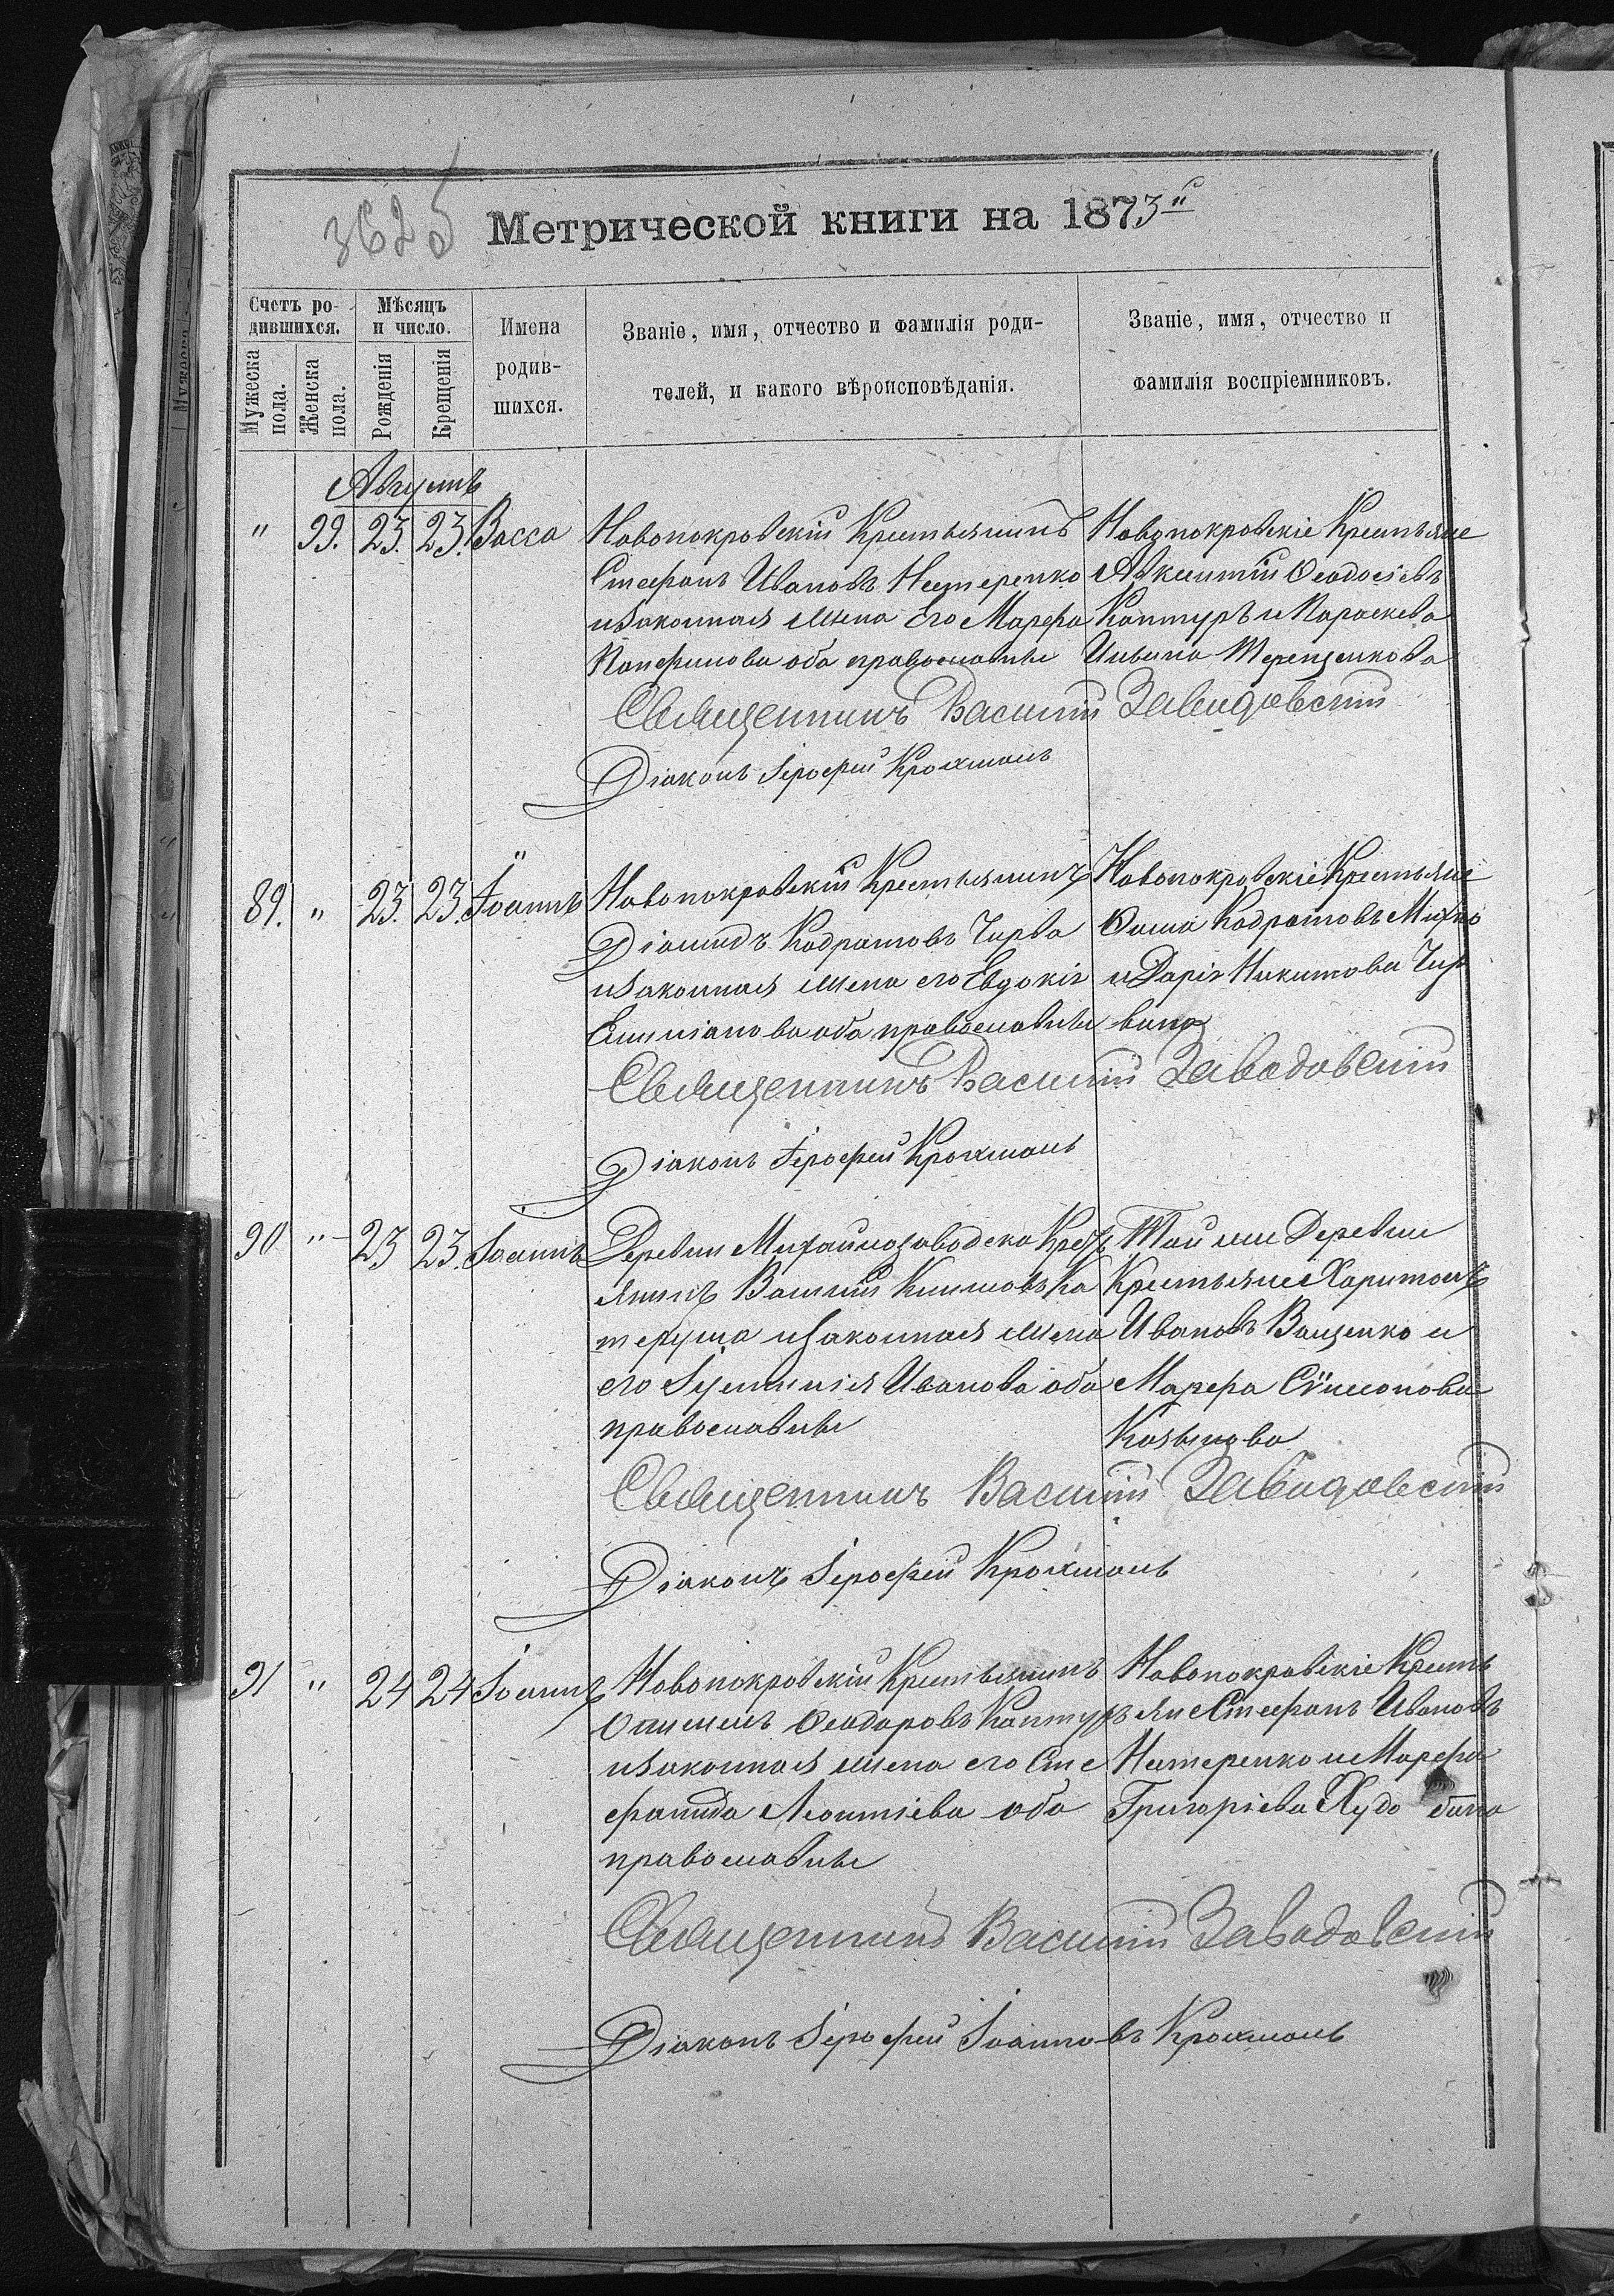 3625
Метрической книги на 1873й
Счетъ родившихся.
Мѣсяцъ и число.
Имена родившихся.
Званіе, имя, отчество и фамилія роди-
телей, и какого вѣроисповѣданія.
Званіе, имя, отчество и
фамилія воспріемниковъ.
Мужеска пола.
Женска пола.
Рожденія
Крещенія
Августъ
" 99. 23. 23. Васса
Новопокровскій Крестьянинъ
Стефанъ Ивановъ Нестеренко
и законная жена Его Марфа
Панфилова оба православные
Новопокровскіе Крестьяне
Авксентій Феодосіевъ
Каптуръ и Параскева
Ильина Терещенкова
Священникъ Василій Завадовскій
Діаконъ Іерофей Крохмаль
89. " 23. 23. Іоаннъ
Новопокровскій Крестьянинъ
Діомидъ Кодратовъ Чирва
и законная жена его Евдокія
Емиліанова оба православные
Новопокровскіе Крестьяне
Фома Кодратовъ Михно
и Дарія Никитова Чир
вина
Священникъ Василій Завадовскій
Діаконъ Іерофей Крохмаль
90 " 23 23. Іоаннъ
Деревни Михайлозаводска Крест
янинъ Василій Климовъ Ка
теруша и законная жена
его Іустинія Иванова оба
православные
Той же Деревни
Крестьяне Харитонъ
Ивановъ Ващенко и
Марфа Сѵмеонова
Козынцова
Священникъ Василій Завадовскій
Діаконъ Іерофей Крохмаль
91 " 24 24 Іоаннъ
Новопокровскій Крестьянинъ
Филимонъ Феодоровъ Каптуръ
и законная жена его Сте
фанида Леонтіева оба
православные
Новопокровскіе Кресть
яне Стефанъ Ивановъ
Нестеренко и Марфа
Григоріева Худо бина
Священникъ Василій Завадовскій
Діаконъ Іерофей Іоанновъ Крохмаль